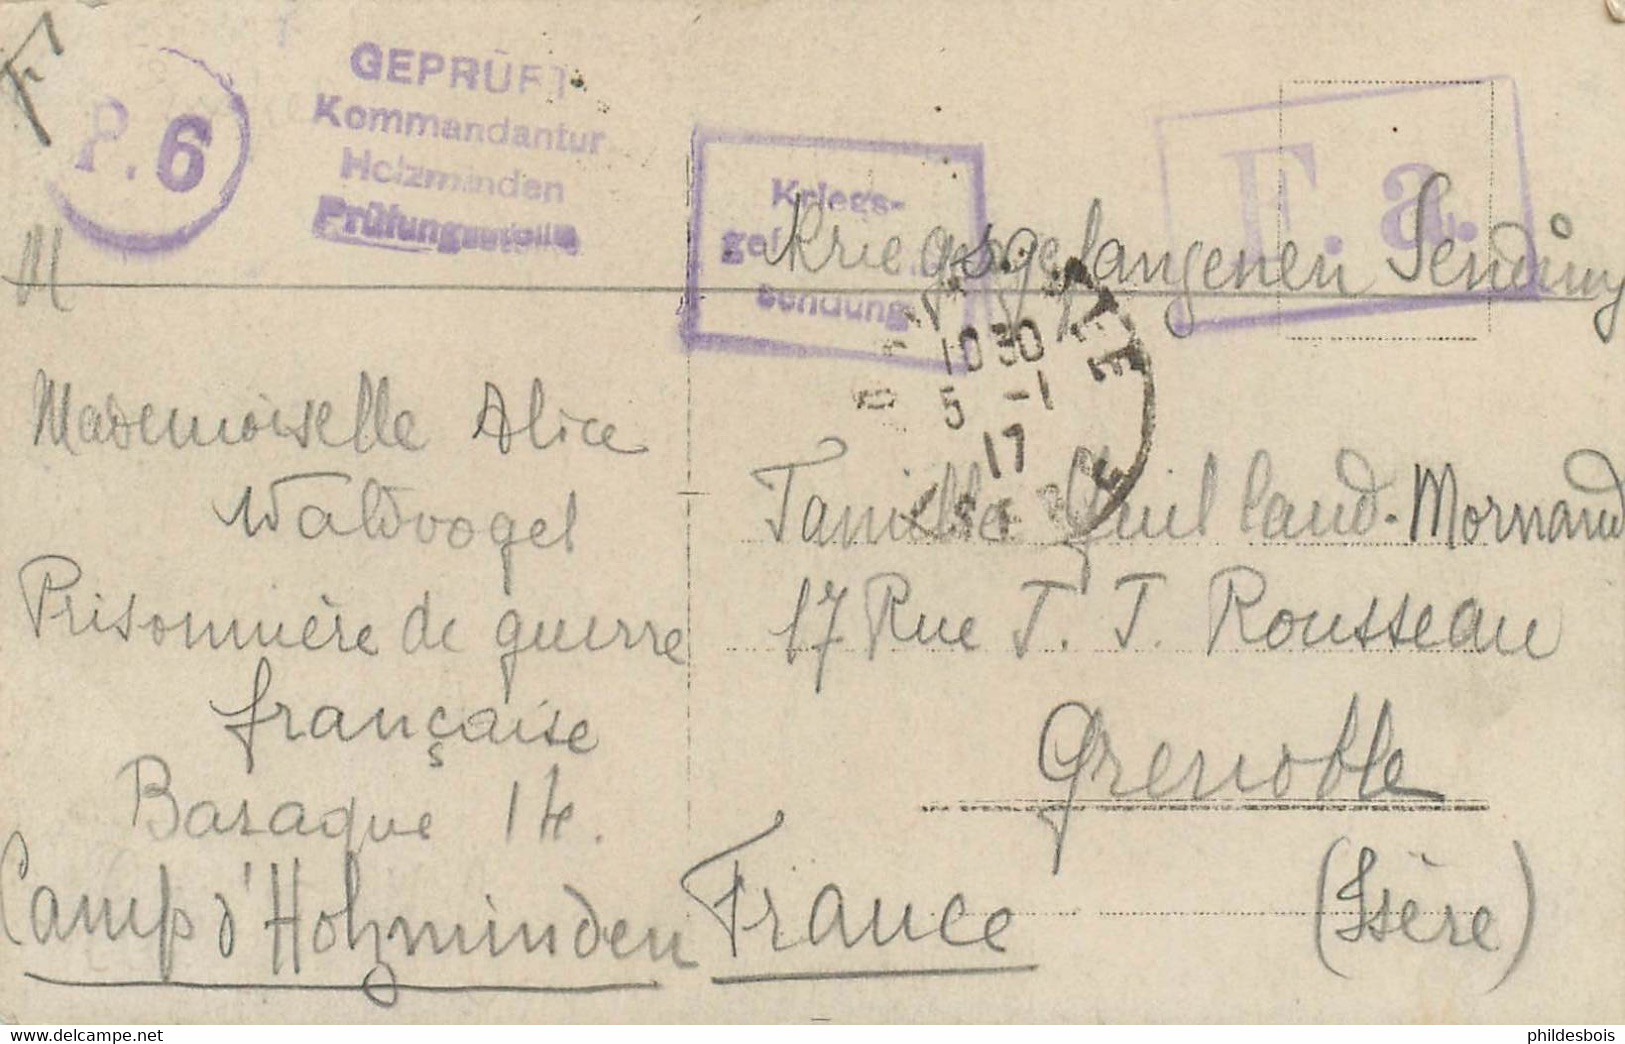 P. 6
GEPRÜFT
Kommandantur
Holzminden
Prüfungsstelle
Kriegs-
sendung
F. a.
Kriegsgefangenen Sendung
M
Mademoiselle Alice
Waldvogel
Prisonnière de guerre
française
Baraque 14.
Camp d'Holzminden
1030
5 -1
17
ISERE
Famille Guilland-Mornand
17 Rue J. J. Rousseau
Grenoble
(Isère)
France
https://www.delcampe.net
phildesbois